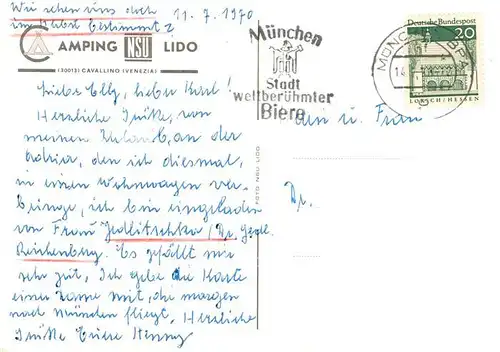 Wir sehen uns doch
im Herbst bestimmt?
11.7.1970
CAMPING NSU LIDO
(30013) CAVALLINO (VENEZIA)
München
Stadt
weltberühmter
Biere
MÜNCHEN BPA
Deutsche Bundespost
20
LORSCH/HESSEN
Liebe Elly, lieber Karl!
Herzliche Grüße, von
meinem Urlaub, an der
Adria, den ich diesmal,
in einem Wohnwagen ver-
bringe, ich bin eingeladen
von Frau Jedlitschka/Dr.
Reichenberg. Es gefällt mir
sehr gut, Ich gebe die Karte
einer Dame mit, die morgen
nach München fliegt, Herzliche
Grüße Eure Henny
FOTO NSU LIDO
Herrn u. Frau
Dr.